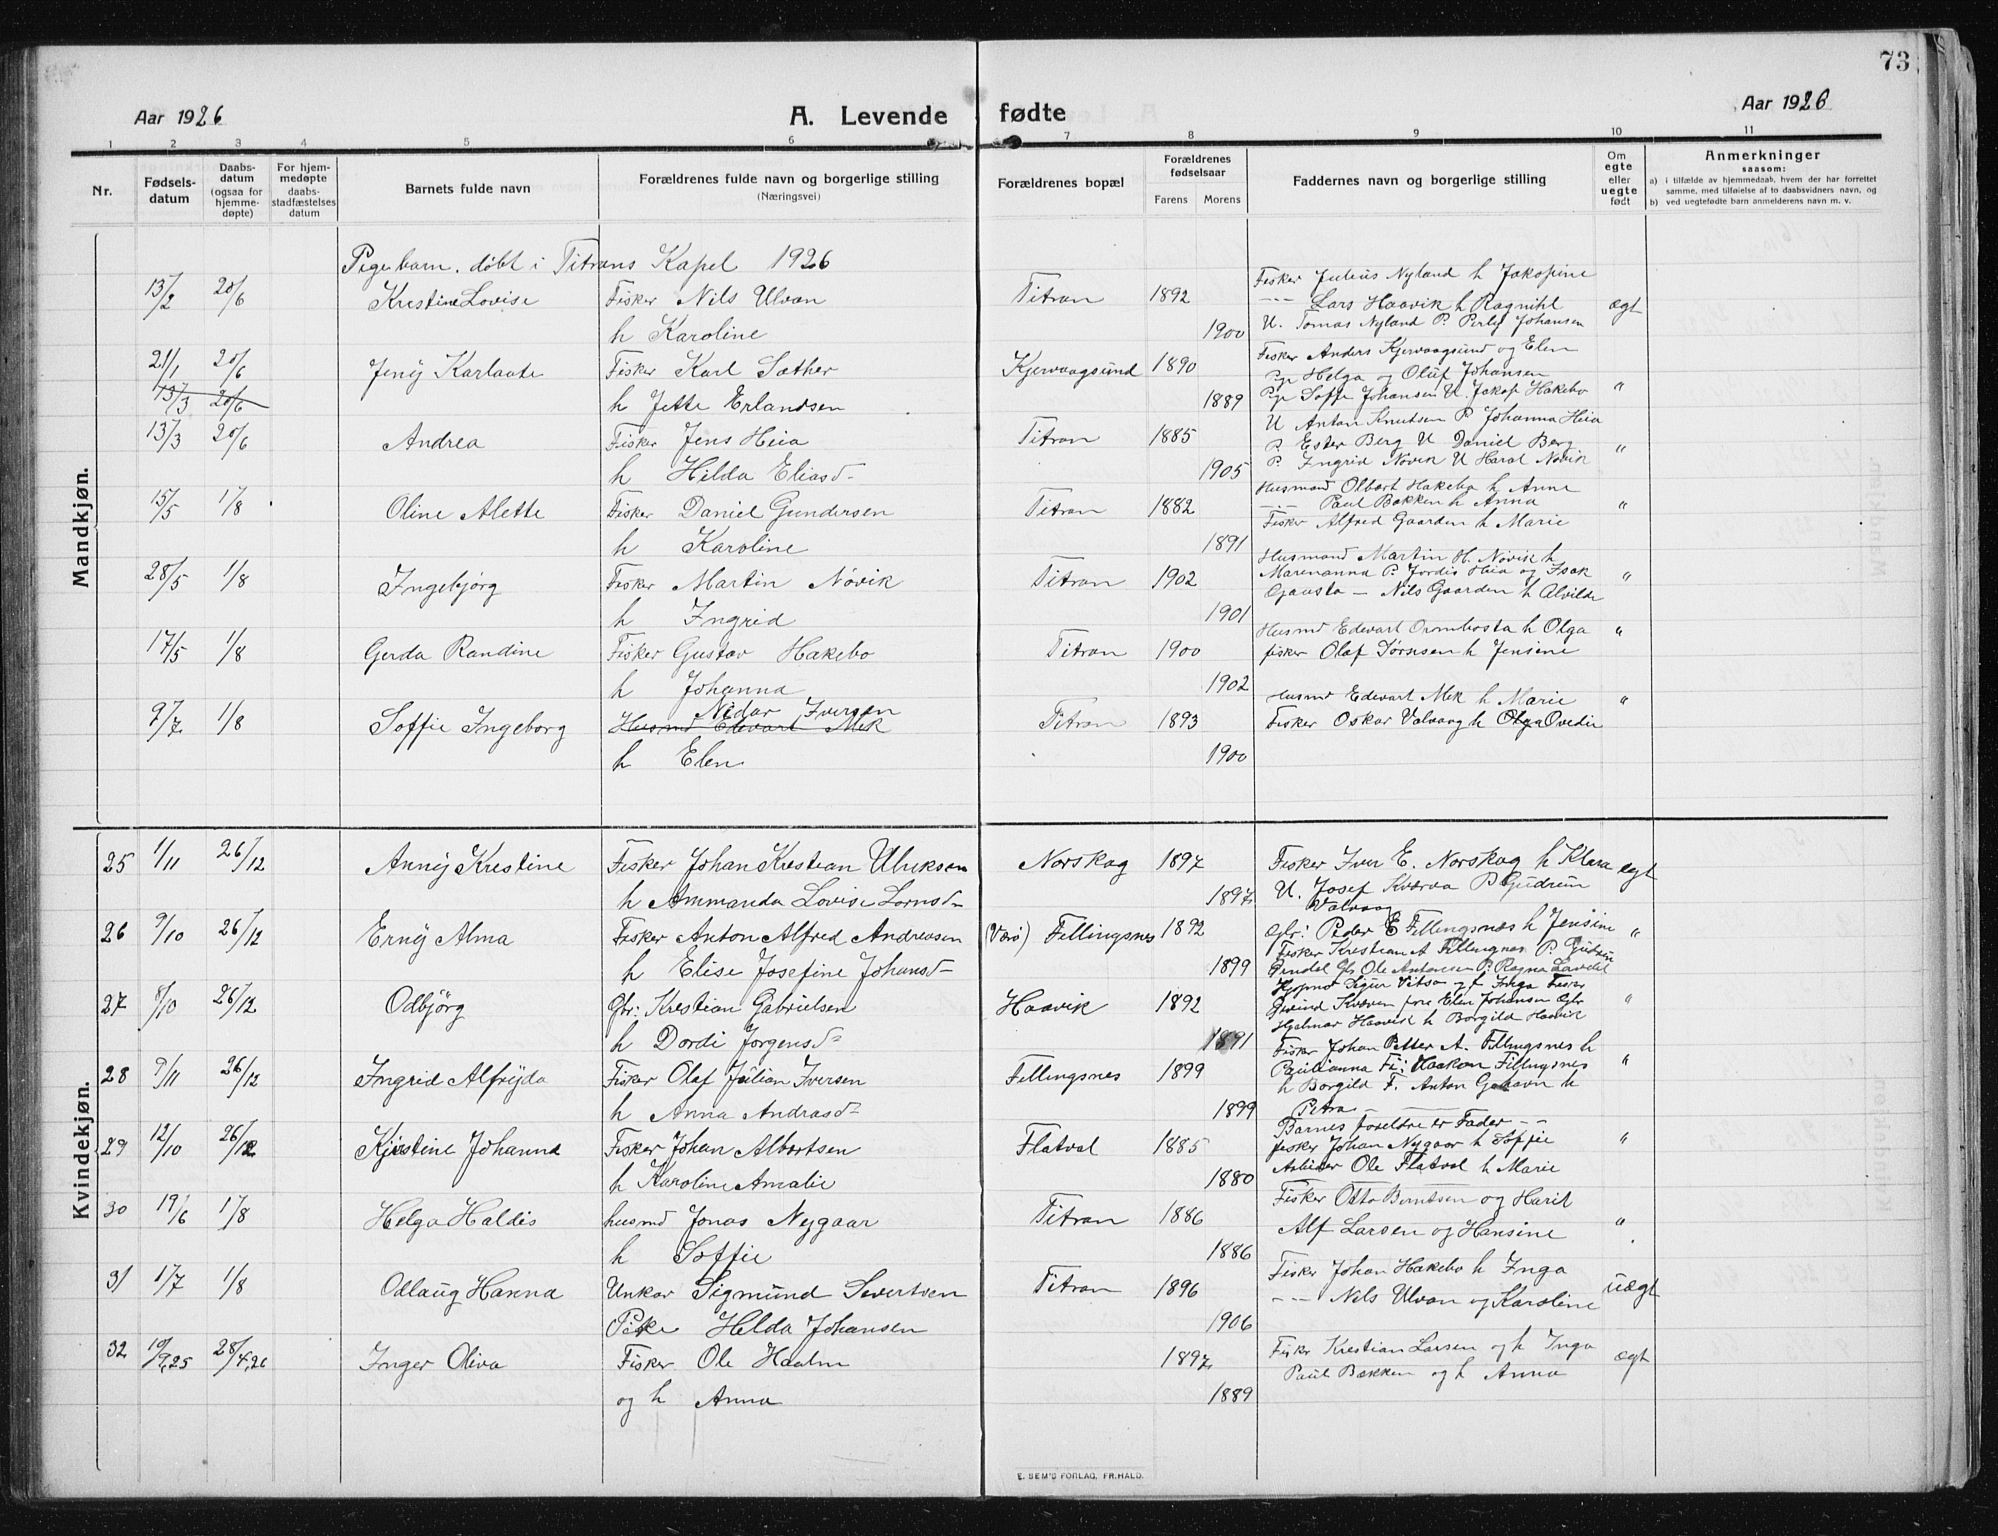 73
Aar 1926 A. Levende fødte Aar 1926
1 2 3 4 5 6 7 8 9 10 11
Nr. Fødselsdatum Daabsdatum (ogsaa for hjemmedøpte) For hjemmedøpte daabsstadfæstelses datum Barnets fulde navn Forældrenes fulde navn og borgerlige stilling (Næringsvei) Forældrenes bopæl Forældrenes fødselsaar Farens Morens Faddernes navn og borgerlige stilling Om egte eller uegte født Anmerkninger saasom:
a) i tilfælde av hjemmedaab, hvem der har forrettet samme, med tilføielse af to daabsvidners navn, og
b) ved uegtefødte barn anmelderens navn m. v.
Mandkjøn.
Pigebarn. døbt i Titrans Kapel 1926
13/2 20/6 Krestine Lovise Fisker Nils Ulvan Titran 1892 Fisker Julius Nyland h Jakopine
h Karoline 1900 --- Lars Haavik h Ragnihl ægt
U. Tomas Nyland P. Perly Johansen
21/1 20/6 Jenij Karlaate Fisker Karl Sæther Kjervaagsund 1890 Fisker Anders Kjervaagsund og Elen
13/3 20/6 h Jette Erlandsen 1889 Pg Helga og Oluf Johansen "
Pg Soffe Johansen U. Jakop Hakebo
13/3 20/6 Andrea Fisker Jens Heia Titran 1885 U Anton Knutsen P. Johanna Heia
h Hilda Eliasd- 1905 P. Ester Berg U Daniel Berg "
P. Ingrid Novik U Haral Novik
15/5 1/8 Oline Alette Fisker Daniel Gundersen Titran 1882 Husmand Olbart Hakebo h Anne
h Karoline 1891 --- Paul Bakken h Anna "
Fisker Alfred Gaarden h Marie
28/5 1/8 Ingebjørg Fisker Martin Növik Titran 1902 Husmand Martin H. Növik h
h Ingrid 1901 Marenanna P. Jordis Heia og Isak "
Gausta - Nils Gaarden h Alvilde
17/5 1/8 Gerda Randine Fisker Gustav Hakebo Titran 1900 Husmd Edevart Ormhosta h Olga "
h Johanna 1902 fisker Olaf Sørnsen h Jensine
9/7 1/8 Soffie Ingeborg Nidar Iversen
Husmd Edevart Mek Titran 1893 Husmd Edevart Mek h Marie "
h Elen 1900 Fisker Oskar Valvaag h Olga Ovedie
Kvindekjøn.
25 1/11 26/12 Annij Krestine Fisker Johan Krestian Ulriksen Norskag 1897 Fisker Iver E. Norskag h Klara ægt
h Ammanda Lovise Lornsd- 1897 U. Josef Kværva P Gudrun
Valvaag
26 9/10 26/12 Ernij Alma Fisker Anton Alfred Andreasen (Værö) Fillingsnes 1892 Gbr: Peder E Fillingsnes h Jensine "
h Elise Josefine Johansd- 1899 Fisker Krestian A Fillingnes P. Gudrun
Ole Antonsen P. Ragna
27 8/10 26/12 Odbjörg Gbr: Krestian Gabrielsen Haavik 1892 "
h Dordi Jorgensd- 1891 Elen Johansen Gbr
Hjalmar Haavik h Borgild Haavik
28 9/11 26/12 Ingrid Alfrijda Fisker Olaf Julian Iversen Fillingsnes 1899 Fisker Johan Petter A. Fillingsnes h "
h Anna Andrasd- 1899 Paulianna Fi: Haakon Fillingsnes
h Borgild F. Anton h
Petra
29 12/10 26/12 Kjirstine Johanna Fisker Johan Albertsen Flatval 1885 Barnes foreldre er Fader --
h Karoline Amalie 1880 fisker Johan Nygaar h Soffie "
Arbeider Ole Flatval h Marie
30 19/6 1/8 Helga Haldis husmd Jonas Nygaar Titran 1886 Fisker Otto Berntsen og Harit
h Soffie 1886 Alf Larsen og Hansine "
31 1/7 1/8 Odlaug Hanna Unkar Sigmund Severtsen Titran 1896 Fisker Johan Hakebo h Inga uægt
Pike Helda Johansen 1906 --- Nils Ulvan og Karoline
32 10/9,25 28/4,26 Inger Oliva Fisker Ole Haalm 1897 Fisker Krestian Larsen og h Inga ægt
og h Anna 1889 Paul Bakken og h Anna
E. SEM'S FORLAG, FR.HALD.